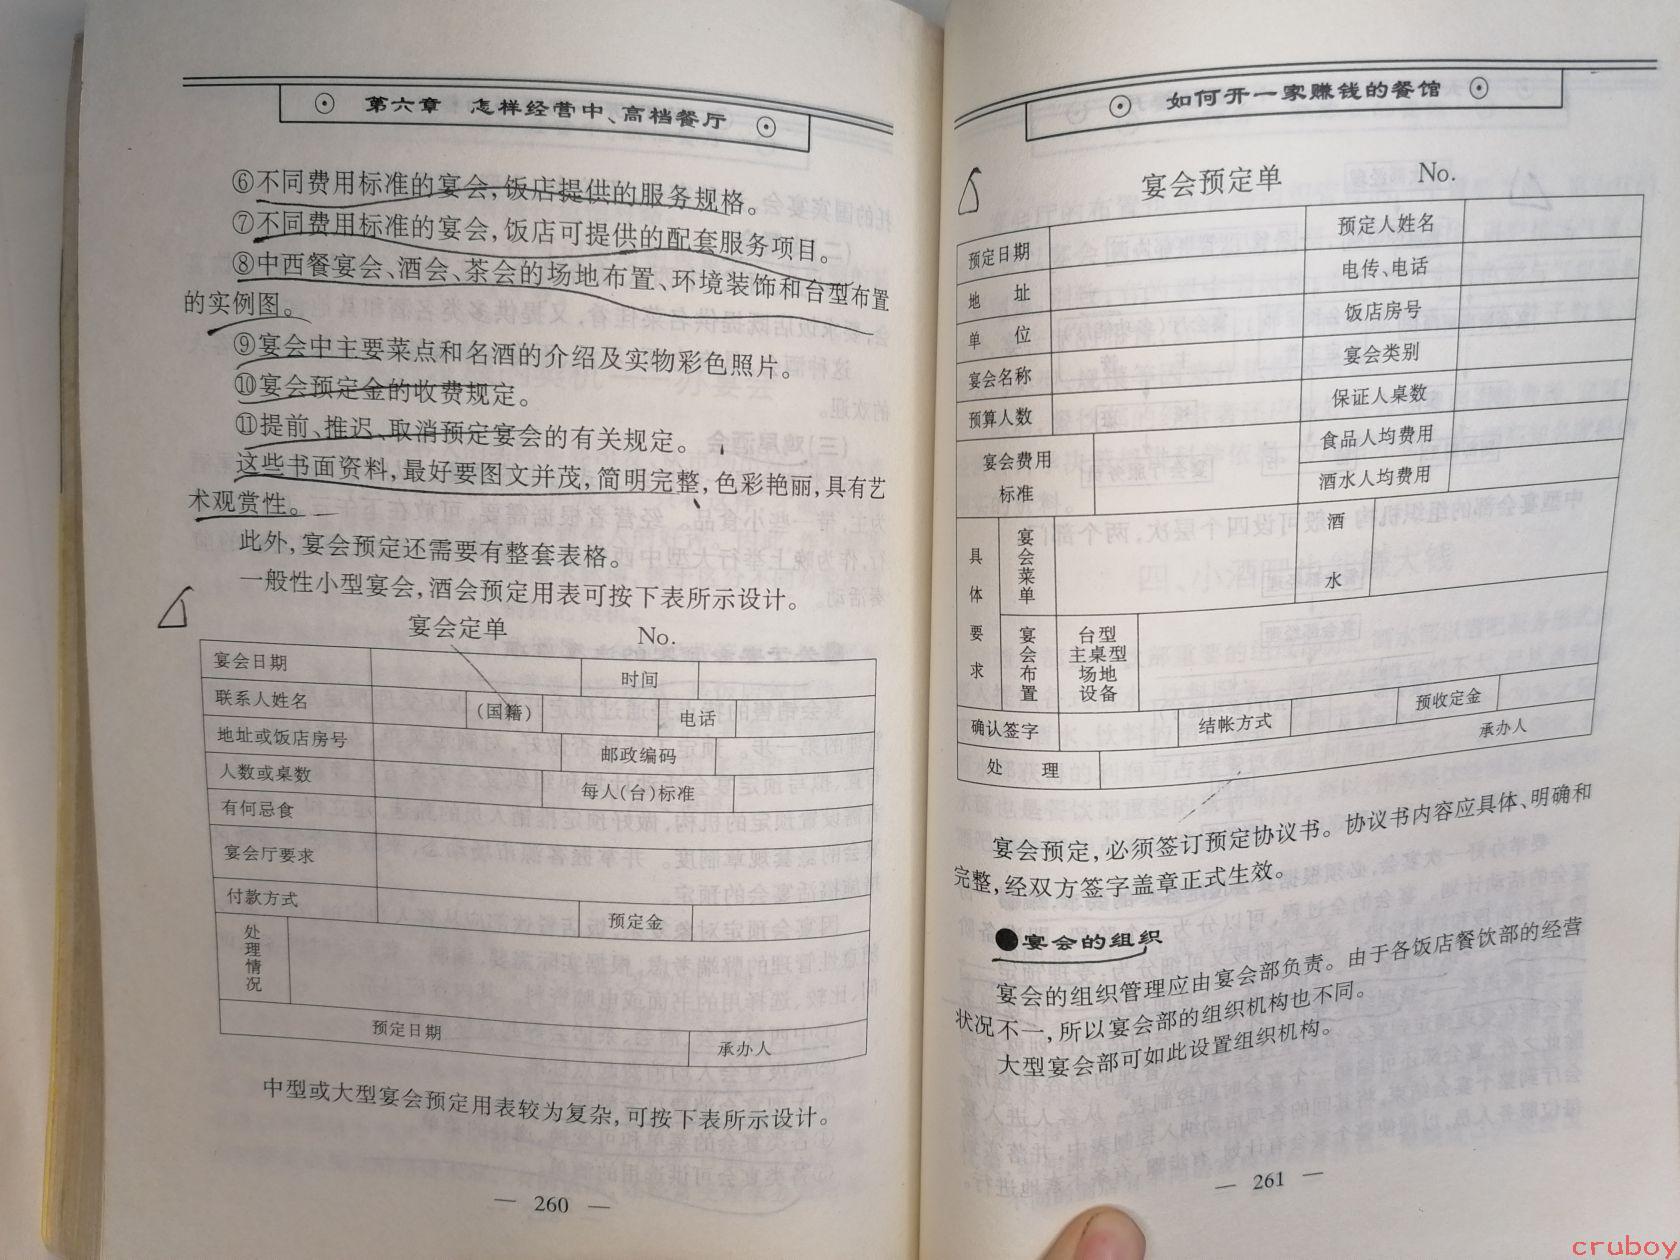 第六章 怎样经营中、高档餐厅
⑥不同费用标准的宴会,饭店提供的服务规格。
⑦不同费用标准的宴会,饭店可提供的配套服务项目。
⑧中西餐宴会、酒会、茶会的场地布置、环境装饰和台型布置
的实例图。
⑨宴会中主要菜点和名酒的介绍及实物彩色照片。
⑩宴会预定金的收费规定。
⑪提前、推迟、取消预定宴会的有关规定。
这些书面资料,最好要图文并茂,简明完整,色彩艳丽,具有艺
术观赏性。
此外,宴会预定还需要有整套表格。
一般性小型宴会,酒会预定用表可按下表所示设计。
宴会定单 No.
宴会日期 时间
联系人姓名 (国籍) 电话
地址或饭店房号 邮政编码
人数或桌数 每人(台)标准
有何忌食
宴会厅要求
付款方式 预定金
处理情况
预定日期 承办人
中型或大型宴会预定用表较为复杂,可按下表所示设计。
— 260 —
如何开一家赚钱的餐馆
宴会预定单 No.
预定日期 预定人姓名
地址 电传、电话
单位 饭店房号
宴会名称 宴会类别
预算人数 保证人桌数
宴会费用 食品人均费用
标准 酒水人均费用
具体要求 宴会菜单 酒水
宴会布置 台型
主桌型
场地
设备
确认签字 结帐方式 预收定金
处理 承办人
宴会预定,必须签订预定协议书。协议书内容应具体、明确和
完整,经双方签字盖章正式生效。
●宴会的组织
宴会的组织管理应由宴会部负责。由于各饭店餐饮部的经营
状况不一,所以宴会部的组织机构也不同。
大型宴会部可如此设置组织机构。
— 261 —
cruboy